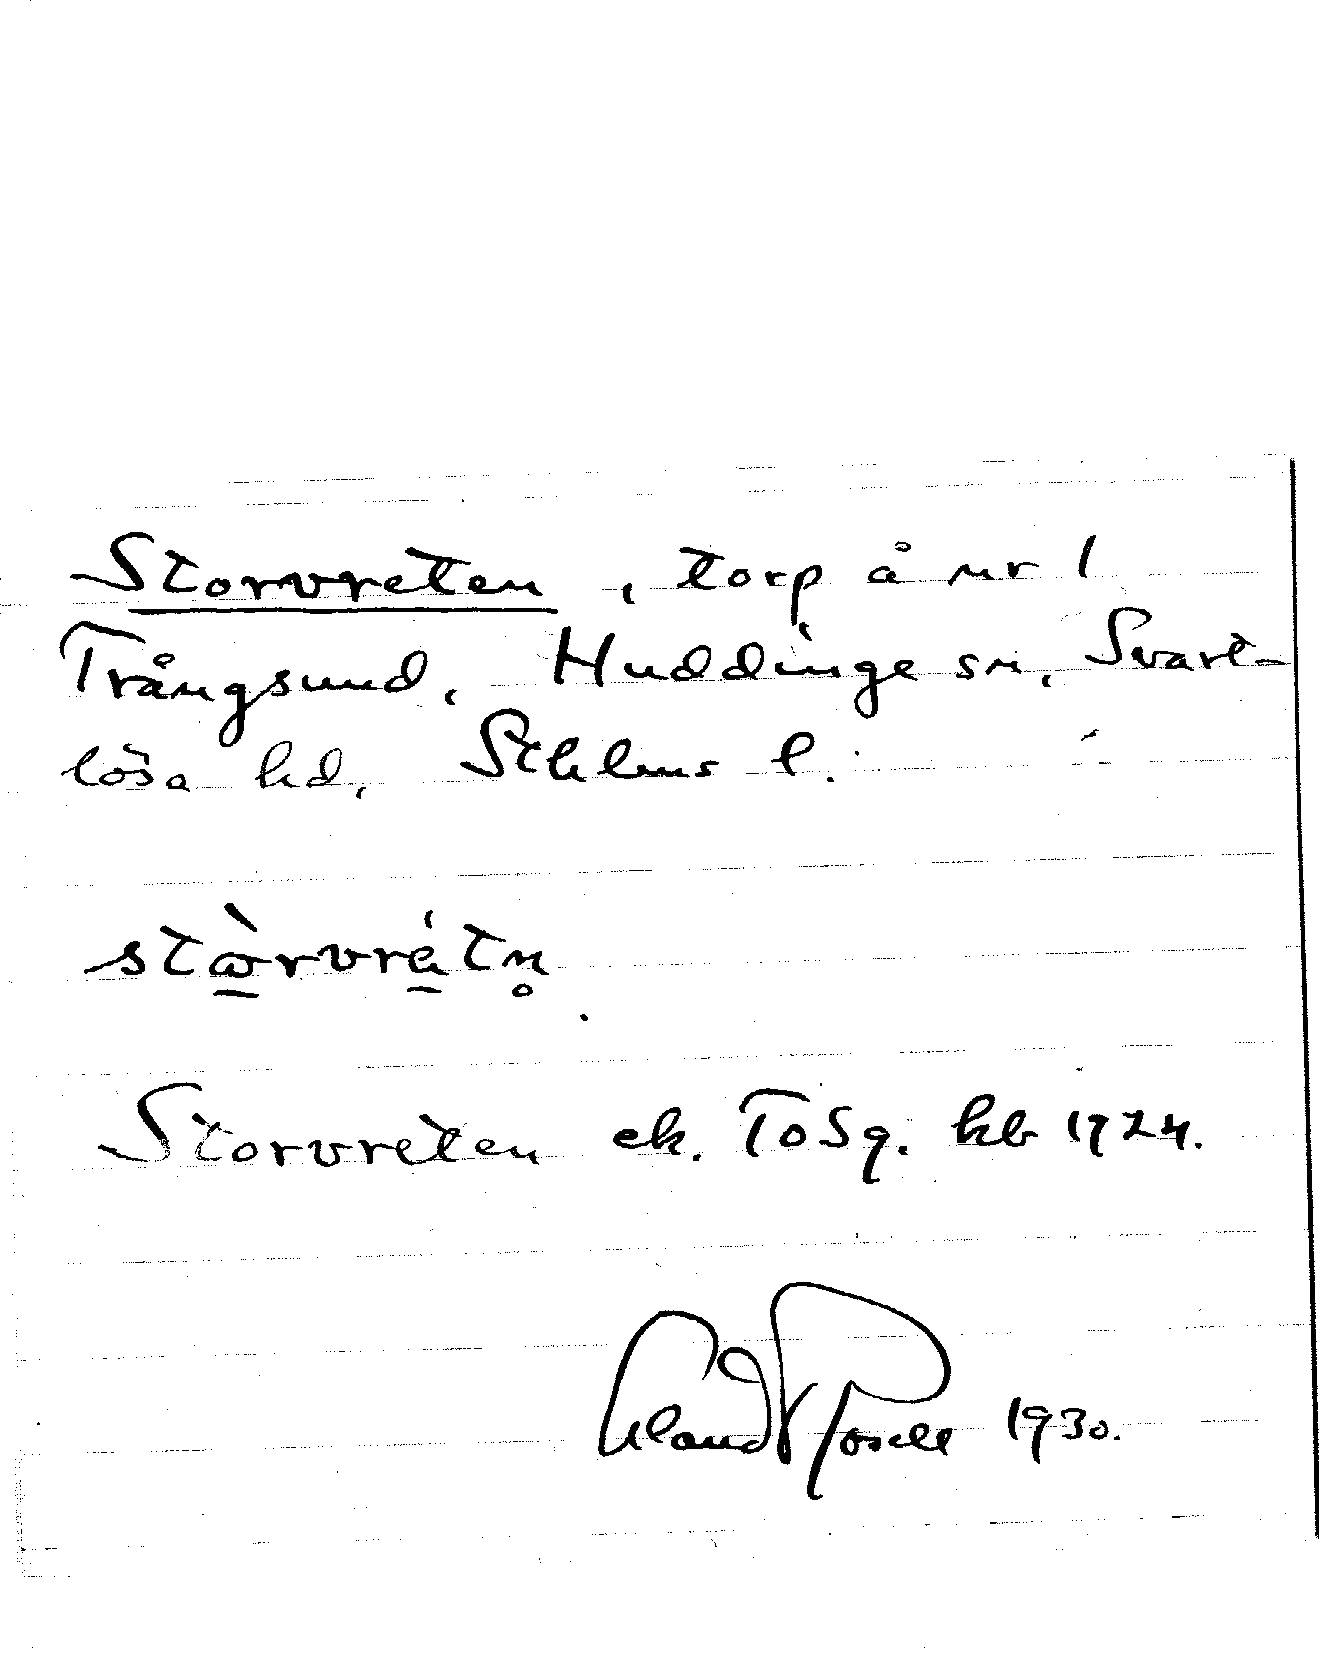 Storvreten, torp å nr 1
Trångsund, Huddinge sn, Svart-
lösa hd, Sthlms l.
stωrvrétn̥
Storvreten ek. ToSq. kb 1924.
1930.